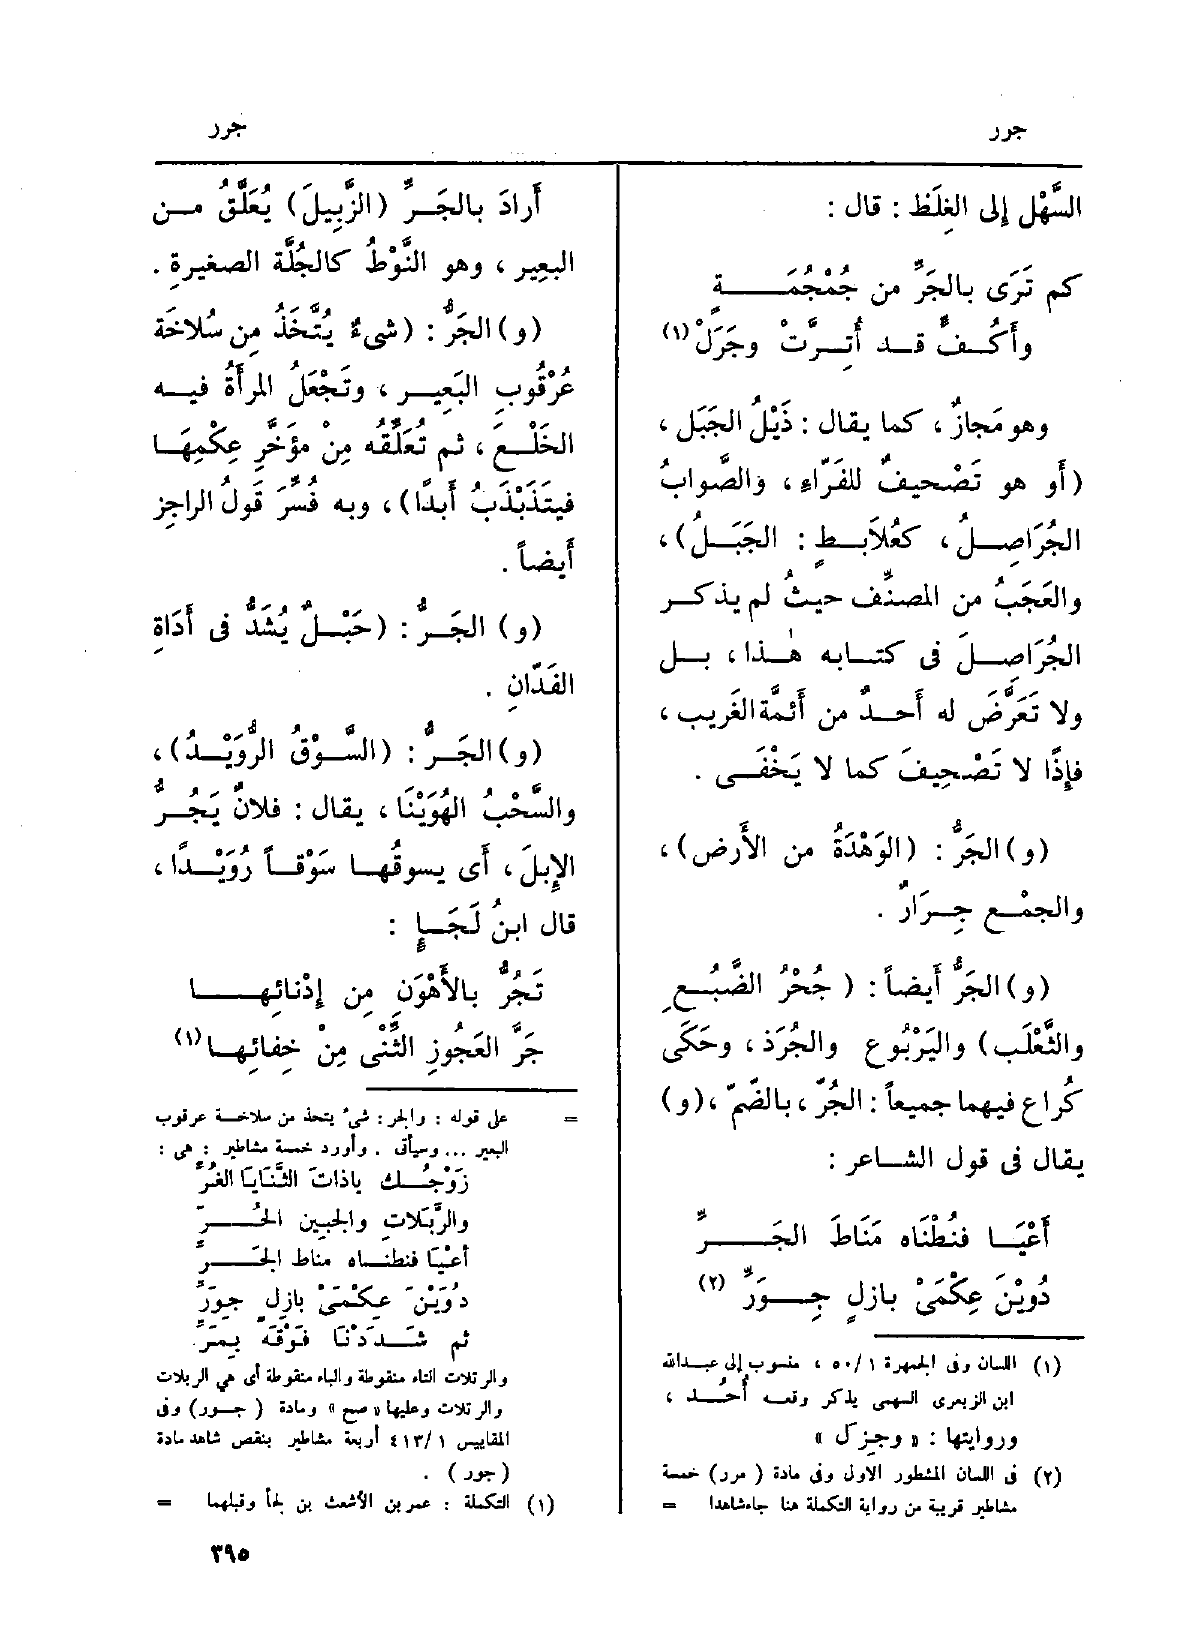 جرر
السَّهْل إلى الغِلَظ : قال :
كم تَرَى بالجَرِّ من جُمْجُمَـةٍ
وأَكُفٍّ قـد أُتِـرَّتْ وجَرَلْ (١)
وهو مَجازٌ ، كما يقال : ذَيْلُ الجَبَل ،
(أَو هو تَصْحيفٌ للفَرّاءِ ، والصَّوابُ
الجُرَاصِـلُ ، كعُلاَبـطٍ : الجَبَـلُ) ،
والعَجَبُ من المصنِّف حيثُ لم يذكـر
الجُرَاصِـلَ فى كتـابه هٰـذا ، بـل
ولا تَعَرَّضَ له أَحـدٌ من أَئمَّة الغَريب ،
فإِذًا لا تَصْحِيفَ كما لا يَخْفَـى .
(و) الجَرُّ : (الوَهْدَةُ من الأَرض) ،
والجمْـع جِـرَارٌ .
(و) الجَرُّ أَيضاً : ( جُحْرُ الضَّبُـعِ
والثَّعْلَب) واليَرْبُوع والجُرَذ ، وحَكَى
كُراع فيهما جميعاً : الجُرّ ، بالضَّمّ ، (و)
يقال فى قول الشاعر :
أَعْيَـا فنُطْنَاه مَنَاطَ الجَـــرِّ
دُوَيْنَ عِكْمَىْ بازِلٍ جِــوَرِّ (٢)
(١) اللسان وفى الجمهرة ١/ ٥٠ ، منسوب إلى عبـدالله
ابن الزبعرى السهمى يذكر وقعـه أُحُـد ،
وروايتها : « وجِزَل »
(٢) فى اللسان المشطور الاول وفى مادة ( مرر) خمسة
مشاطير قريبة من رواية التكملة هنا جاءشاهدا =
جرر
أَرادَ بالجَـرِّ (الزَّبِيلَ) يُعَلَّقُ مـن
البعِير ، وهو النَّوْطُ كالجُلَّة الصغيرةِ .
(و) الجَرُّ : (شىءٌ يُتَّخَذُ مِن سُلاخَة
عُرْقُوبِ البَعِيـر ، وتَجْعَلُ المرأَةُ فيـه
الخَلْـعَ ، ثم تُعَلِّقُه مِنْ مؤَخَّرِ عِكْمِهَـا
فيتَذَبْذَبُ أَبدًا) ، وبه فُسِّرَ قَولُ الراجز
أَيضاً .
(و) الجَـرُّ : (حَبْـلٌ يُشَدُّ فى أَدَاةِ
الفَدّانِ .
(و) الجَـرُّ : (السَّـوْقُ الرُّوَيْـدُ) ،
والسَّحْبُ الهُوَيْنَا ، يقال : فلانٌ يَجُـرُّ
الإِبلَ ، أَى يسوقُهـا سَوْقـاً رُوَيْـدًا ،
قال ابنُ لَجَـإٍ :
تَجُرُّ بالأَهْوَنِ مِن إِدْنائِهـــا
جَرَّ العَجُوزِ الثِّنْىَ مِنْ خِفائِهـا (١)
= على قوله : والجر : شىءٌ يتخذ من سلاخـة عرقوب
البعير ... وسيأتى . وأورد خمسة مشاطير : هى :
زَوْجُـكِ ياذاتَ الثَّنَايَا الغُرِّ
والرَّبَلاتِ والجبين الحُـــرِّ
أعْيَا فنطنـاه مناط الجَـــرِّ
دُوَيْنَ عِكْمَىْ بازِلٍ جِوَرِّ
ثم شَـدَدْنَا فَوْقَهُ بِمَرِّ.
والرتلات التاء منقوطة والباء منقوطة أى هى الربلات
والرتلات وعليها « صح » ومادة ( جـور) وفى
المقاييس ١/ ٤١٣ أربعة مشاطير بنقص شاهد مادة
(جور) .
(١) التكملة : عمر بن الأشعث بن لجأ وقبلهما =
٣٩٥